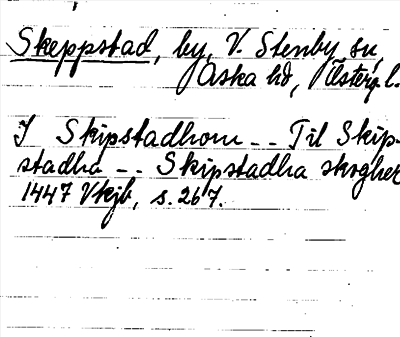 Skeppstad, by, V. Stenby sn,
Aska hd, Österg. l.
I Skipstadhom -- Til Skip-
stadha -- Skipstadha skogher
1447 Vkjb, s. 267.